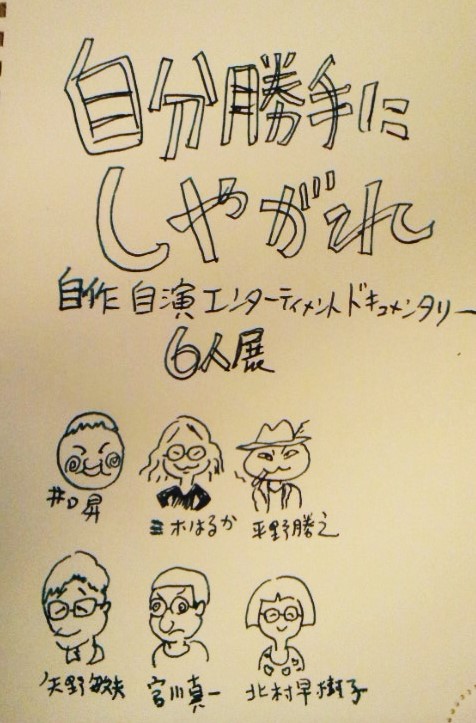 自分勝手に
しやがれ
自作自演エンターティメントドキュメンタリー
6人展
井口昇 三木はるか 平野勝之
矢野敏夫 宮川真一 北村早樹子